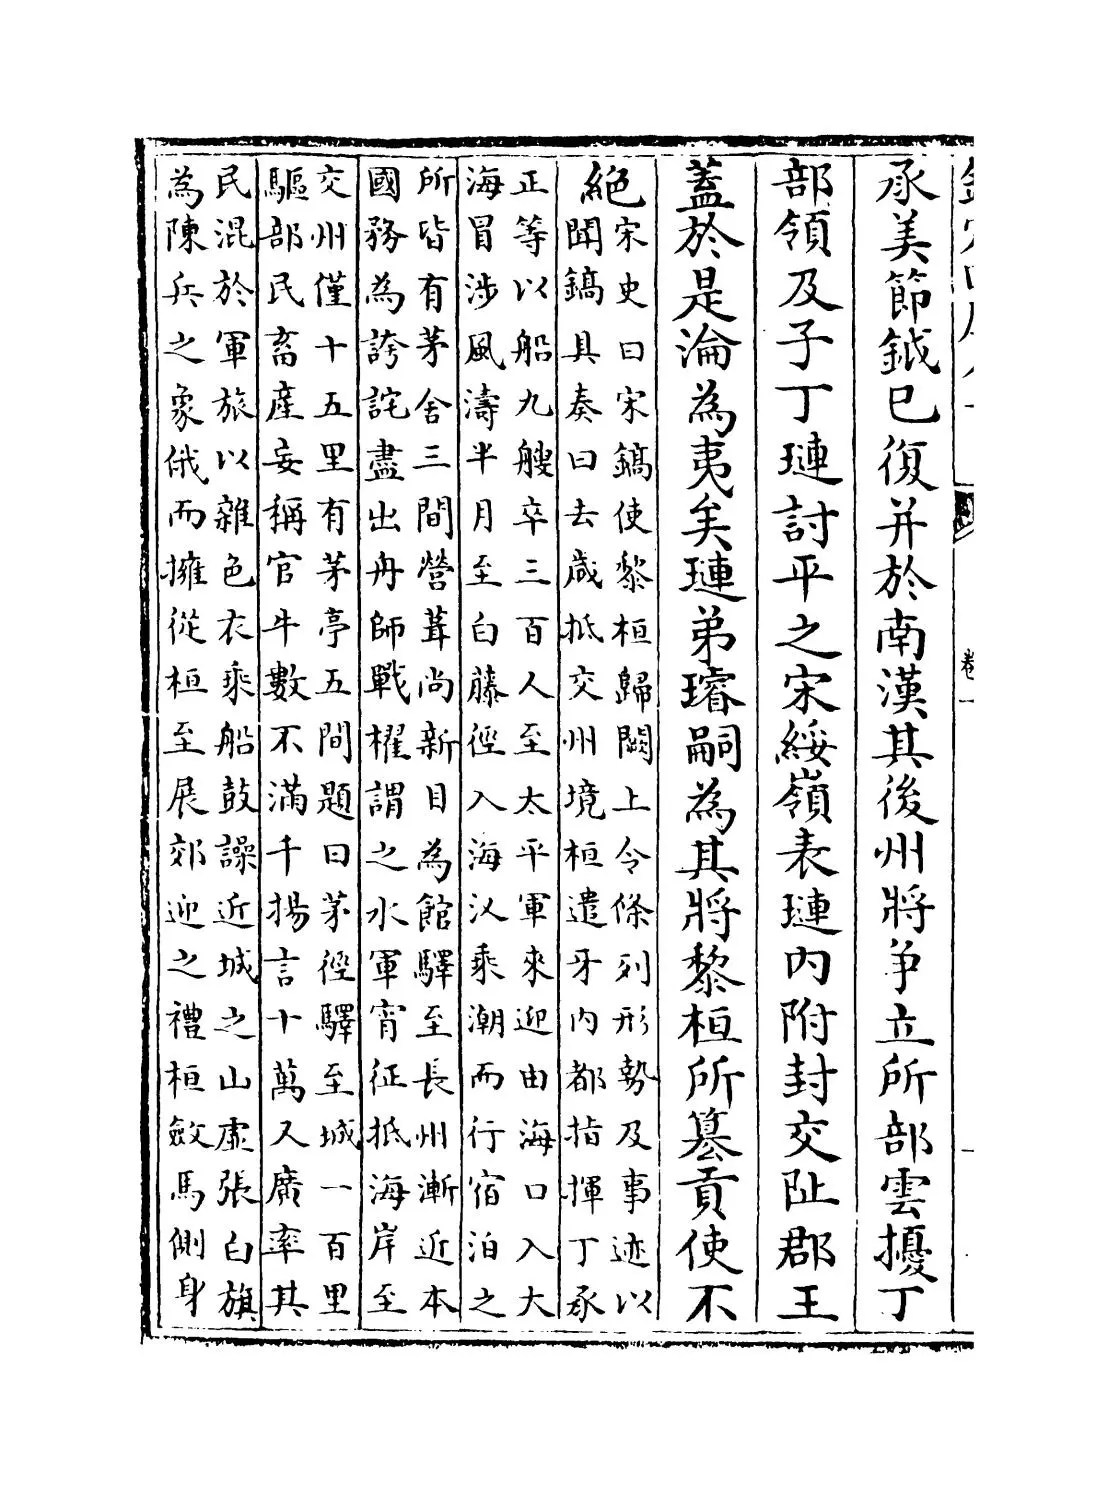 卷一
承美節鉞已復并於南漢其後州將爭立所部雲擾丁
部領及子丁璉討平之宋綏嶺表璉内附封交阯郡王
蓋於是淪為夷矣璉弟璿嗣為其將黎桓所簒貢使不
絶
宋史曰宋鎬使黎桓歸闕上令條列形勢及事迹以
聞鎬具奏曰去歲抵交州境桓遣牙内都指揮丁承
正等以船九艘卒三百人至太平軍來迎由海口入大
海冒涉風濤半月至白藤徑入海汊乘潮而行宿泊之
所皆有茅舍三間營葺尚新目為館驛至長州漸近本
國務為誇詫盡出舟師戰櫂謂之水軍宵征抵海岸至
交州僅十五里有茅亭五間題曰茅徑驛至城一百里
驅部民畜産妄稱官牛數不滿千揚言十萬又廣率其
民混於軍旅以雜色衣乘船鼓譟近城之山虚張白旗
為陳兵之象俄而擁從桓至展郊迎之禮桓斂馬側身